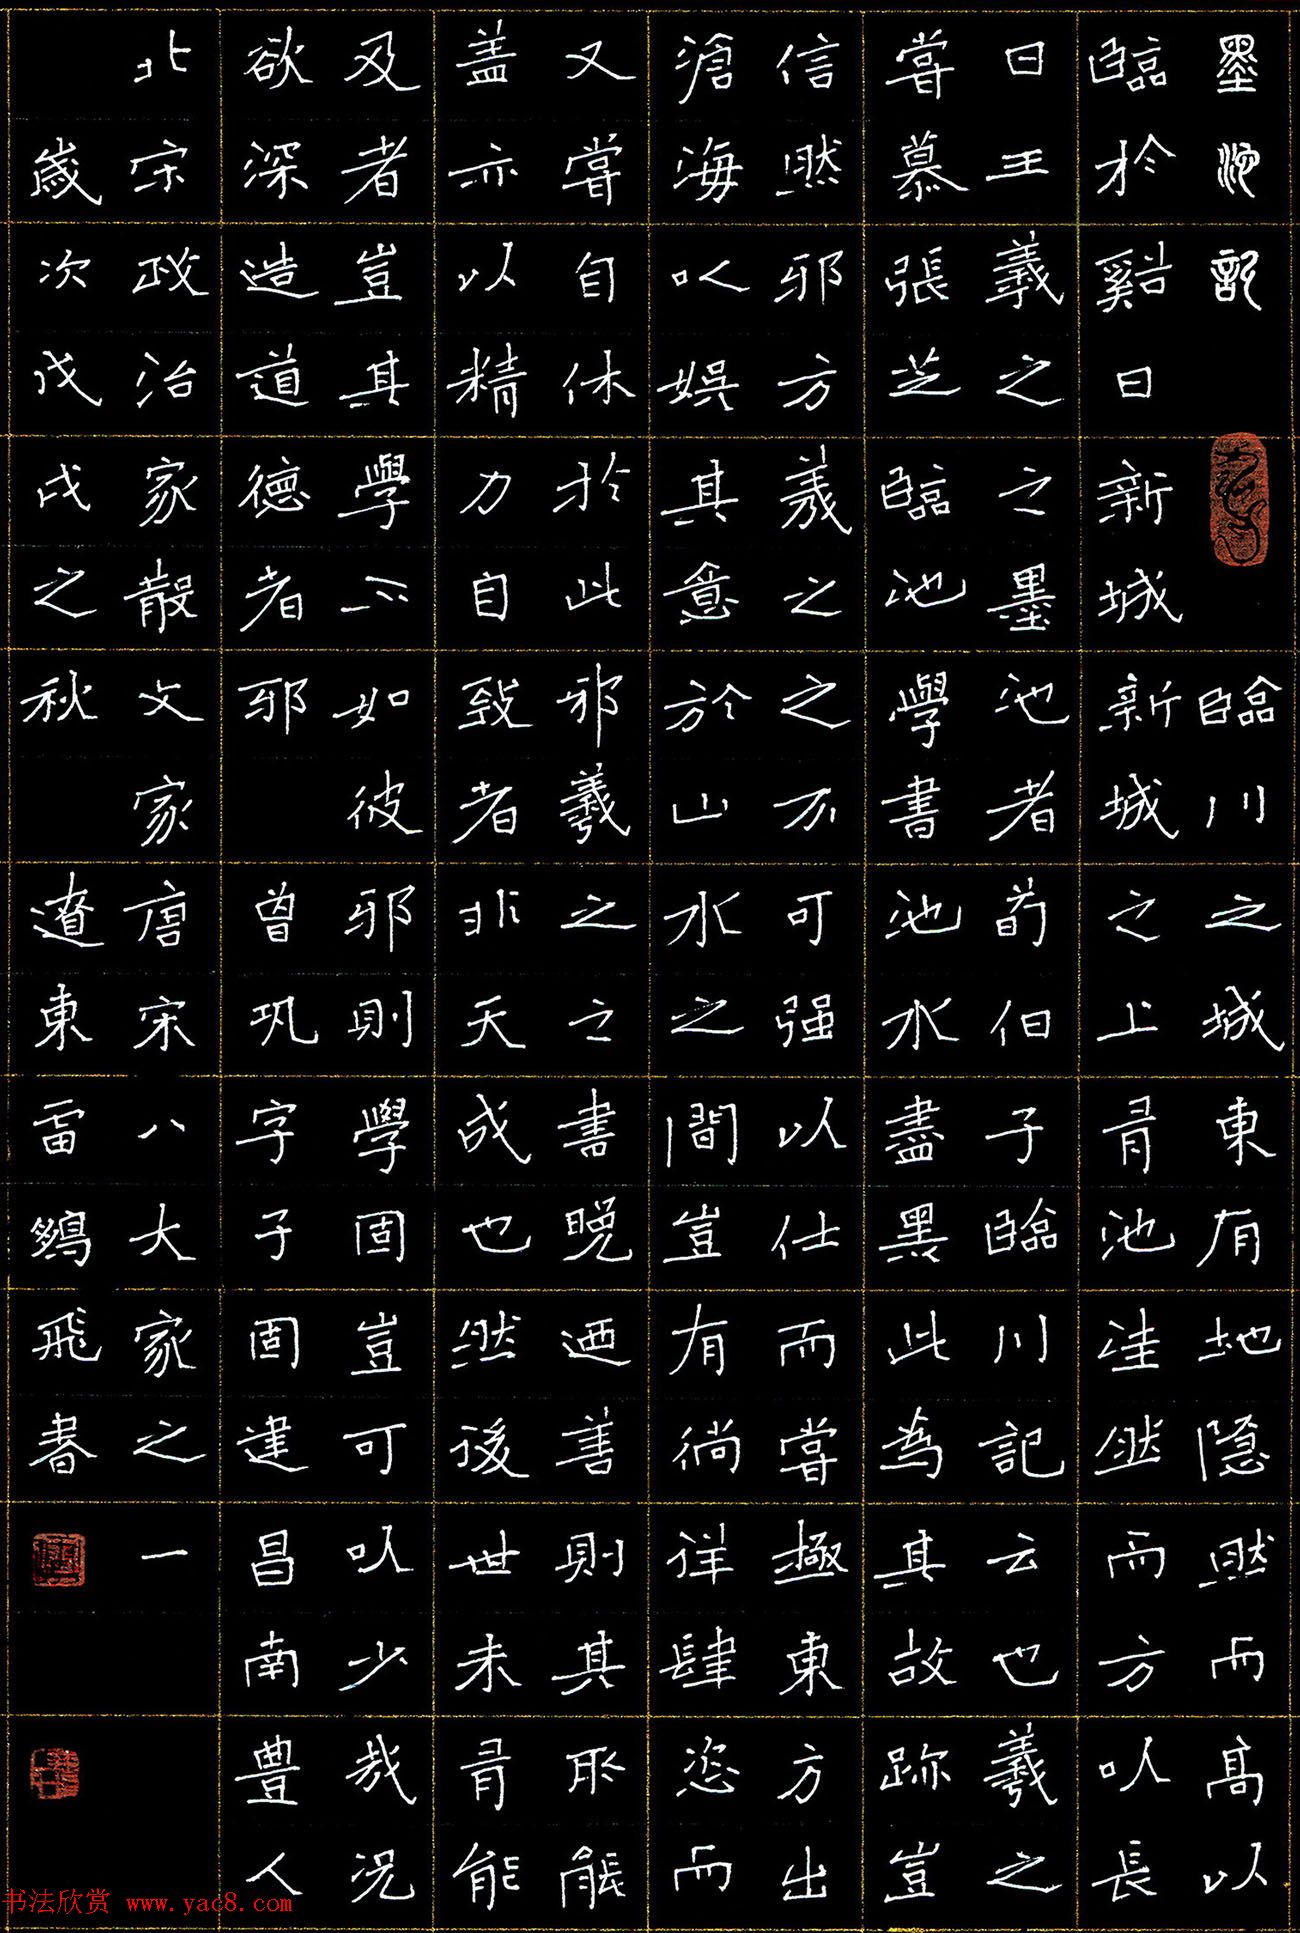 墨池記 臨川之城東有地隱然而高以
臨於谿曰新城新城之上有池洼然而方以長
曰王羲之之墨池者荀伯子臨川記云也羲之
嘗慕張芝臨池學書池水盡黑此為其故跡豈
信然邪方羲之之不可强以仕而嘗極東方出
滄海以娛其意於山水之間豈有徜徉肆恣而
又嘗自休於此邪羲之之書晚迺善則其所能
蓋亦以精力自致者非天成也然後世未有能
及者豈其學不如彼邪則學固豈可以少哉況
欲深造道德者邪 曾巩字子固建昌南豊人
北宋政治家散文家唐宋八大家之一
歲次戊戌之秋 遼東雷飛書
书法欣赏 www.yac8.com